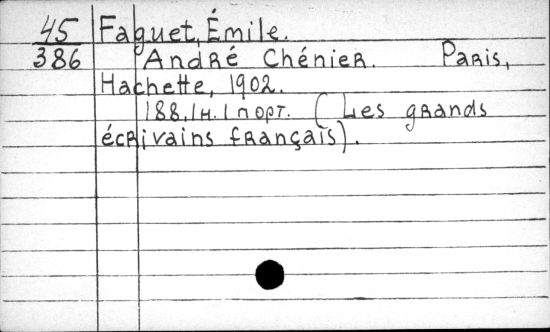 45 Faguet, Émile.
386 André Chénier. Paris,
Hachette, 1902.
188, 1 н. 1 порт. (Les grands
écrivains français).